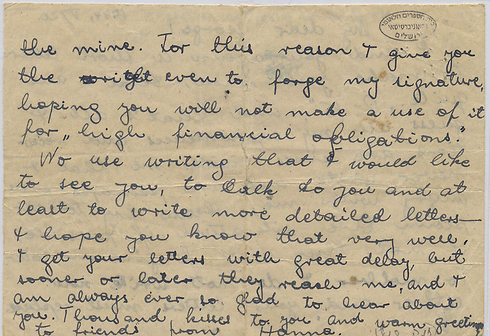 the mine. For this reason I give you
the right even to forge my signature,
hoping you will not make a use of it
for „high financial obligations."
No use writing that I would like
to see you, to talk to you and at
least to write more detailed letters —
I hope you know that very well,
I get your letters with great delay, but
sooner or later they reach me, and I
am always ever so glad to hear about
you. Thousand kisses to you and warm greeting
to friends from Hanna.
ירושלים